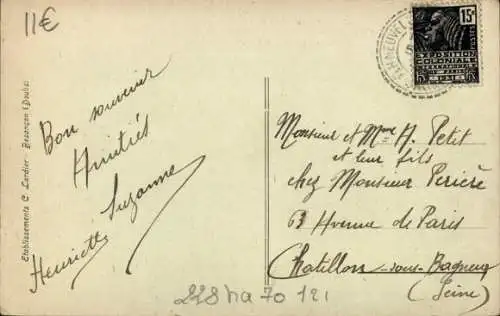 11€
15c
EXPOSITION
COLONIALE
INTERNATIONALE
PARIS 1931
POSTES
Bon souvenir
Amitiés
Suzanne
Henriette
Etablissements C. Lardier - Besançon (Doubs)
Monsieur et Mme H. Petit
et leur fils
chez Monsieur Perière
63 Avenue de Paris
Chatillon-sous-Bagneux
(Seine)